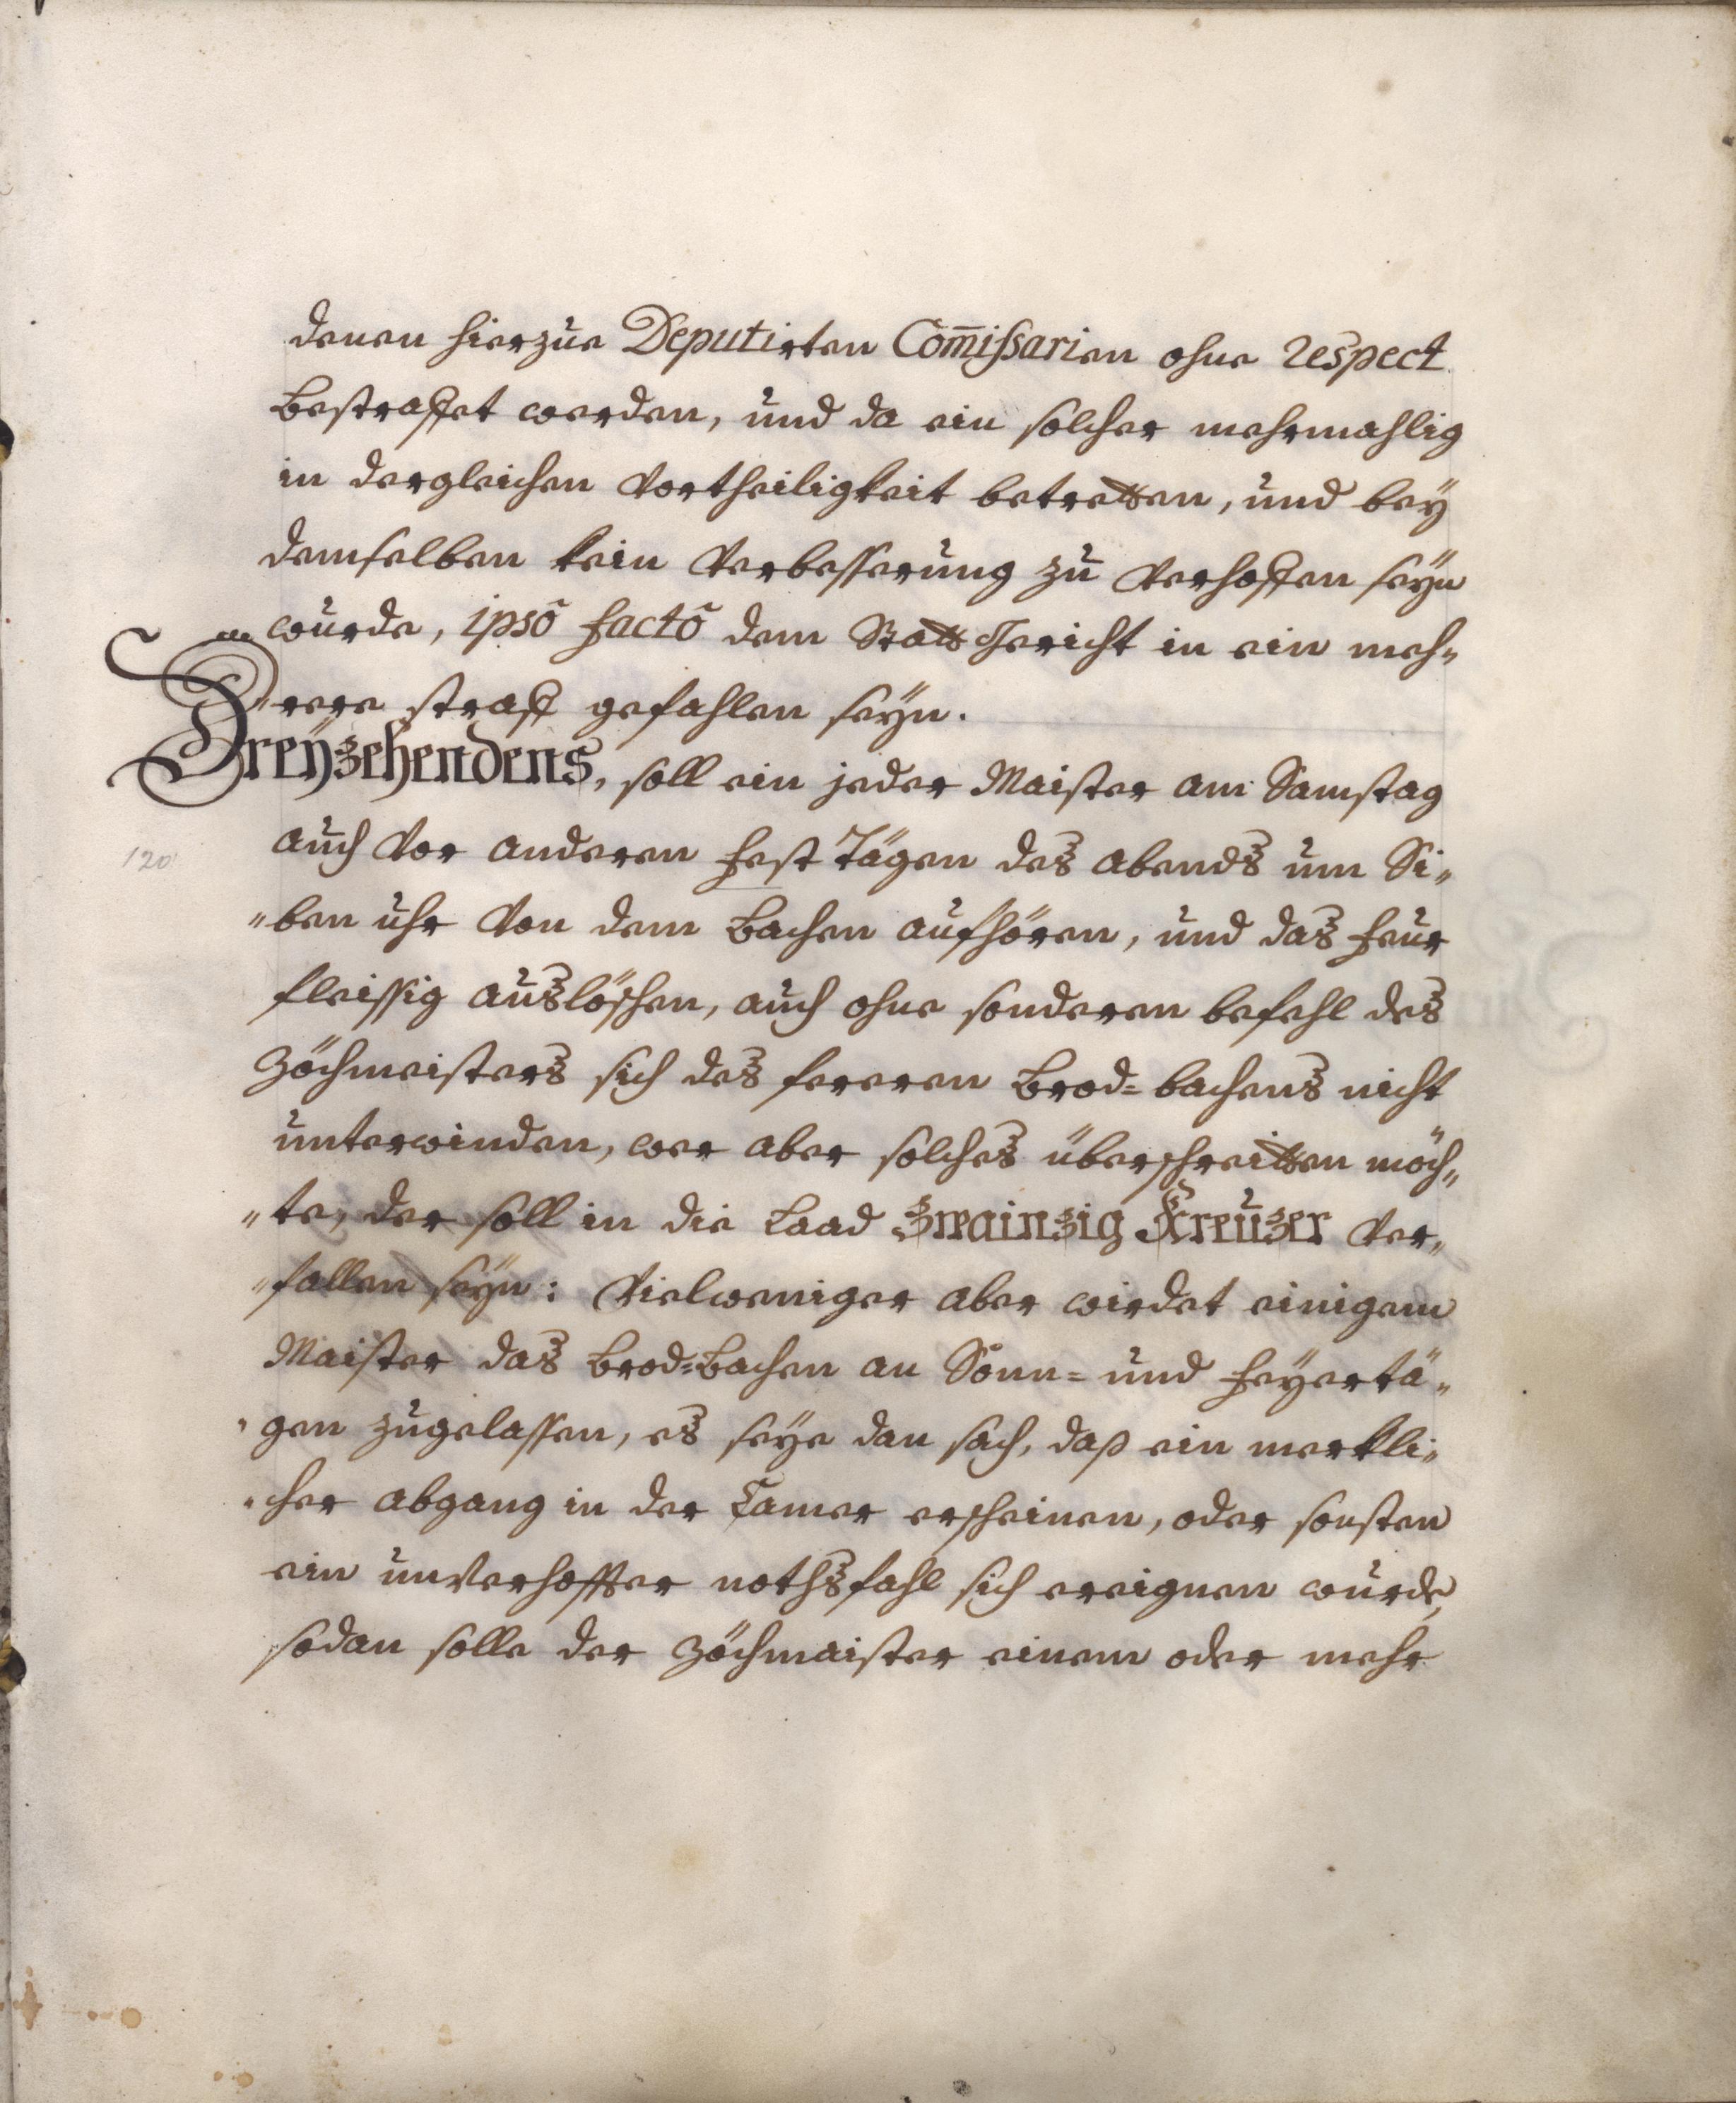 denen hierzue Deputirten Com̄ißarien ohne respect
bestraffet werden, und da ein solcher mehrmahlig
in dergleichen Vortheiligkeit betretten, und beÿ
demselben kein Verbesserung zu Verhoffen seÿn
wurde, ipsô factô dem Statt Gericht in ein meh„
„rere straff gefahlen seÿn.
Dreÿzehendens, soll ein jeder Maister am Samstag
auch Vor anderen Fest Tägen des abends um Si„
„ben uhr Von dem Bachen aufhören, und das Feur
fleissig auslöschen, auch ohne sonderen befehl des
Zöchmeisters sich des fereren Brod=bachens nicht
unterwinden, wer aber solches überschreitten möch„
„te, der soll in die Laad Zwainzig Kreuzer Ver„
„fallen seÿn: Vielweniger aber wirdet einigem
Maister das Brod=Bachen an Sonn= und Feÿertä„
„gen zugelassen, es seÿe dan sach, daß ein merkli„
„cher abgang in der Camer erscheinen, oder sonsten
ein unverhoffter nothsfahl sich ereignen wurde,
sodan solle der Zöchmaister einem oder mehr
120